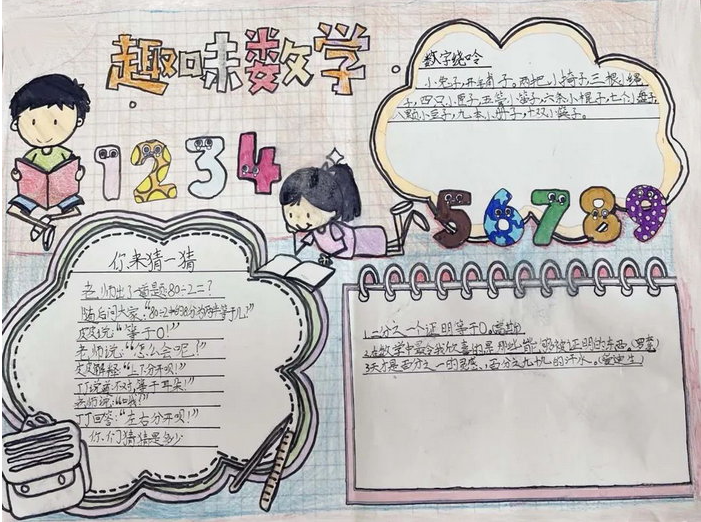 趣味数学
1234
数字绕口令
小兔子,开铺子。两把小椅子,三根小绳
子,四只小匣子,五管小笛子,六条小棍子,七个小盘子,
八颗小豆子,九本小册子,十双小筷子。
56789
你来猜一猜
老师出了一道题80÷2=?
随后问大家:"80÷2 8分为两半等于几?"
皮皮说:"等于0!"
老师说:"怎么会呢!"
皮皮解释:"上下分开呗!"
丁丁说着:不对,等于耳朵!"
老师说:"哦?"
丁丁回答:"左右分开呗!"
你们猜猜是多少
1.二分之一个证明等于0。(高斯)
2.在数学中最令我欣喜的是那些能够被证明的东西。(罗素)
3.天才是百分之一的灵感,百分之九十九的汗水。(爱迪生)